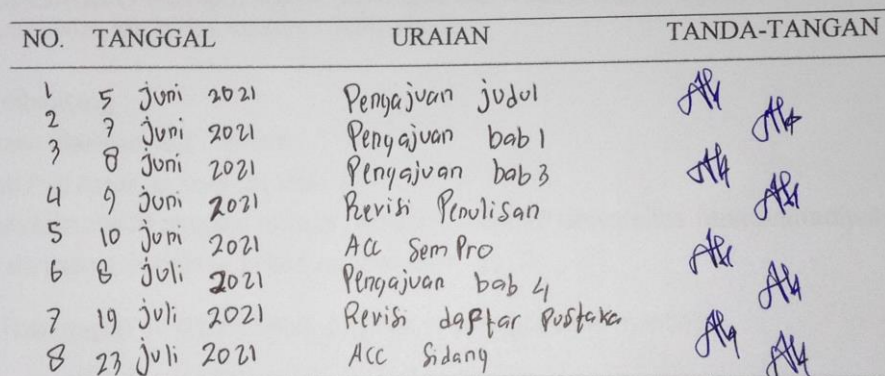 NO. TANGGAL URAIAN TANDA-TANGAN
1 5 Juni 2021 Pengajuan judul
2 7 Juni 2021 Pengajuan bab 1
3 8 Juni 2021 Pengajuan bab 3
4 9 Juni 2021 Revisi Penulisan
5 10 Juni 2021 Acc SemPro
6 8 Juli 2021 Pengajuan bab 4
7 19 Juli 2021 Revisi daftar Pustaka
8 23 Juli 2021 Acc Sidang